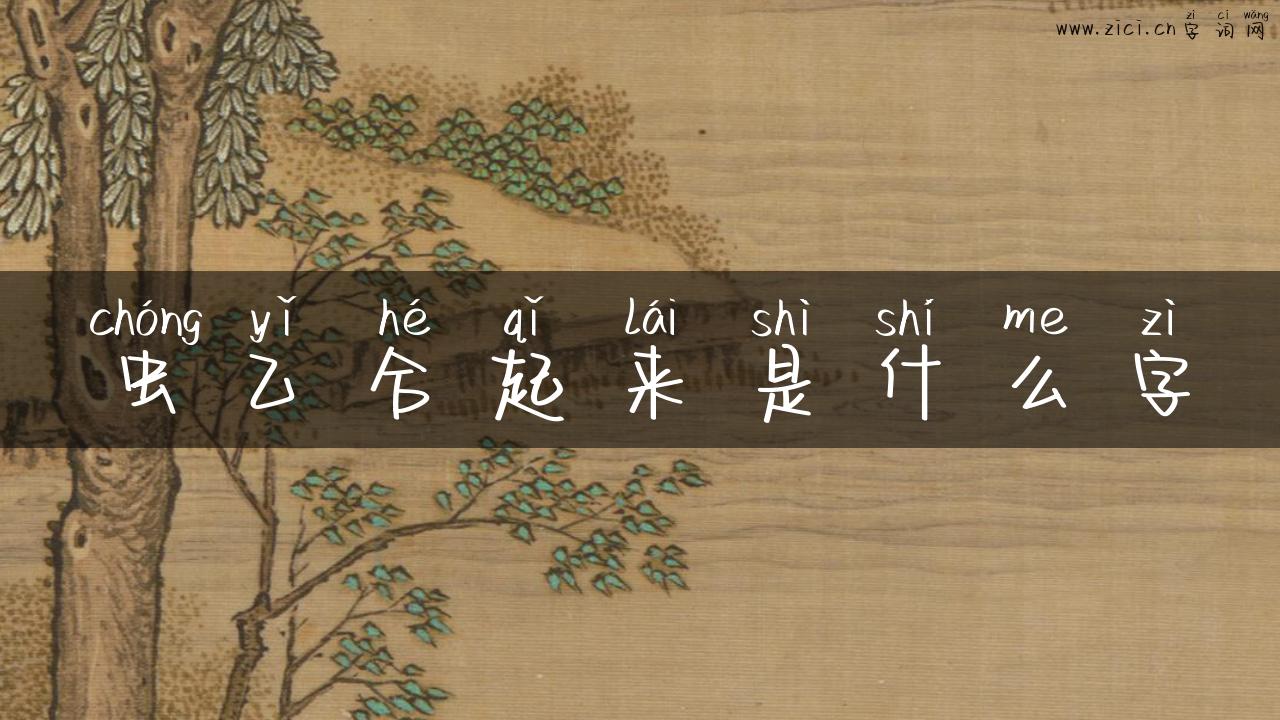 zì cí wǎng
www.zici.cn 字词网
chóng yǐ hé qǐ lái shì shí me zì
虫乙合起来是什么字